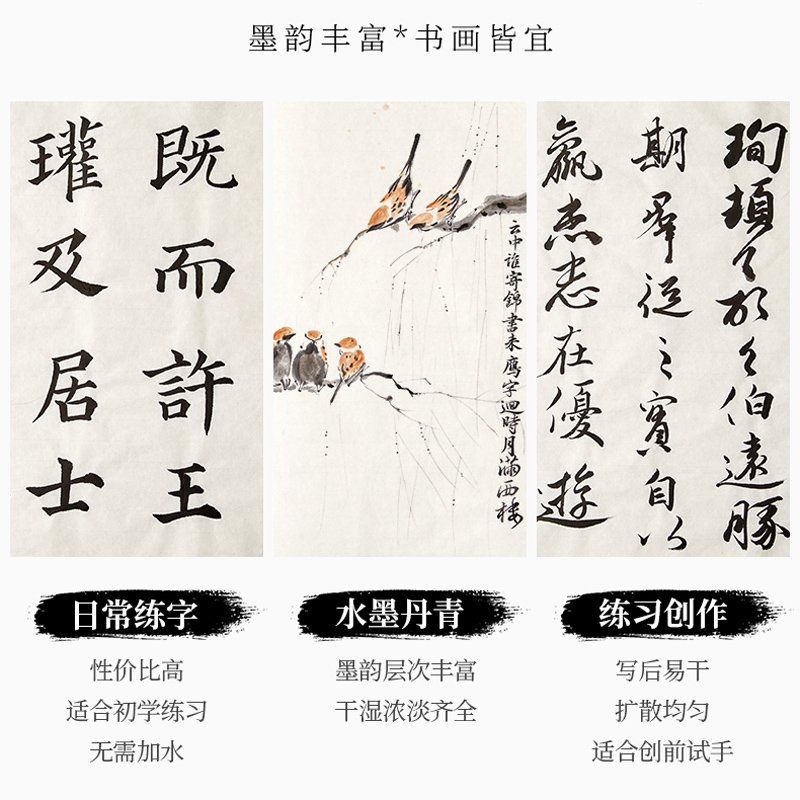 墨韵丰富*书画皆宜
既而許王
瓘及居士
云中誰寄錦書来鹰字迴時月滿西楼
珣頓〻首〻伯遠勝
期羣從之寶自以
羸患志在優遊
日常练字
性价比高
适合初学练习
无需加水
水墨丹青
墨韵层次丰富
干湿浓淡齐全
练习创作
写后易干
扩散均匀
适合创前试手